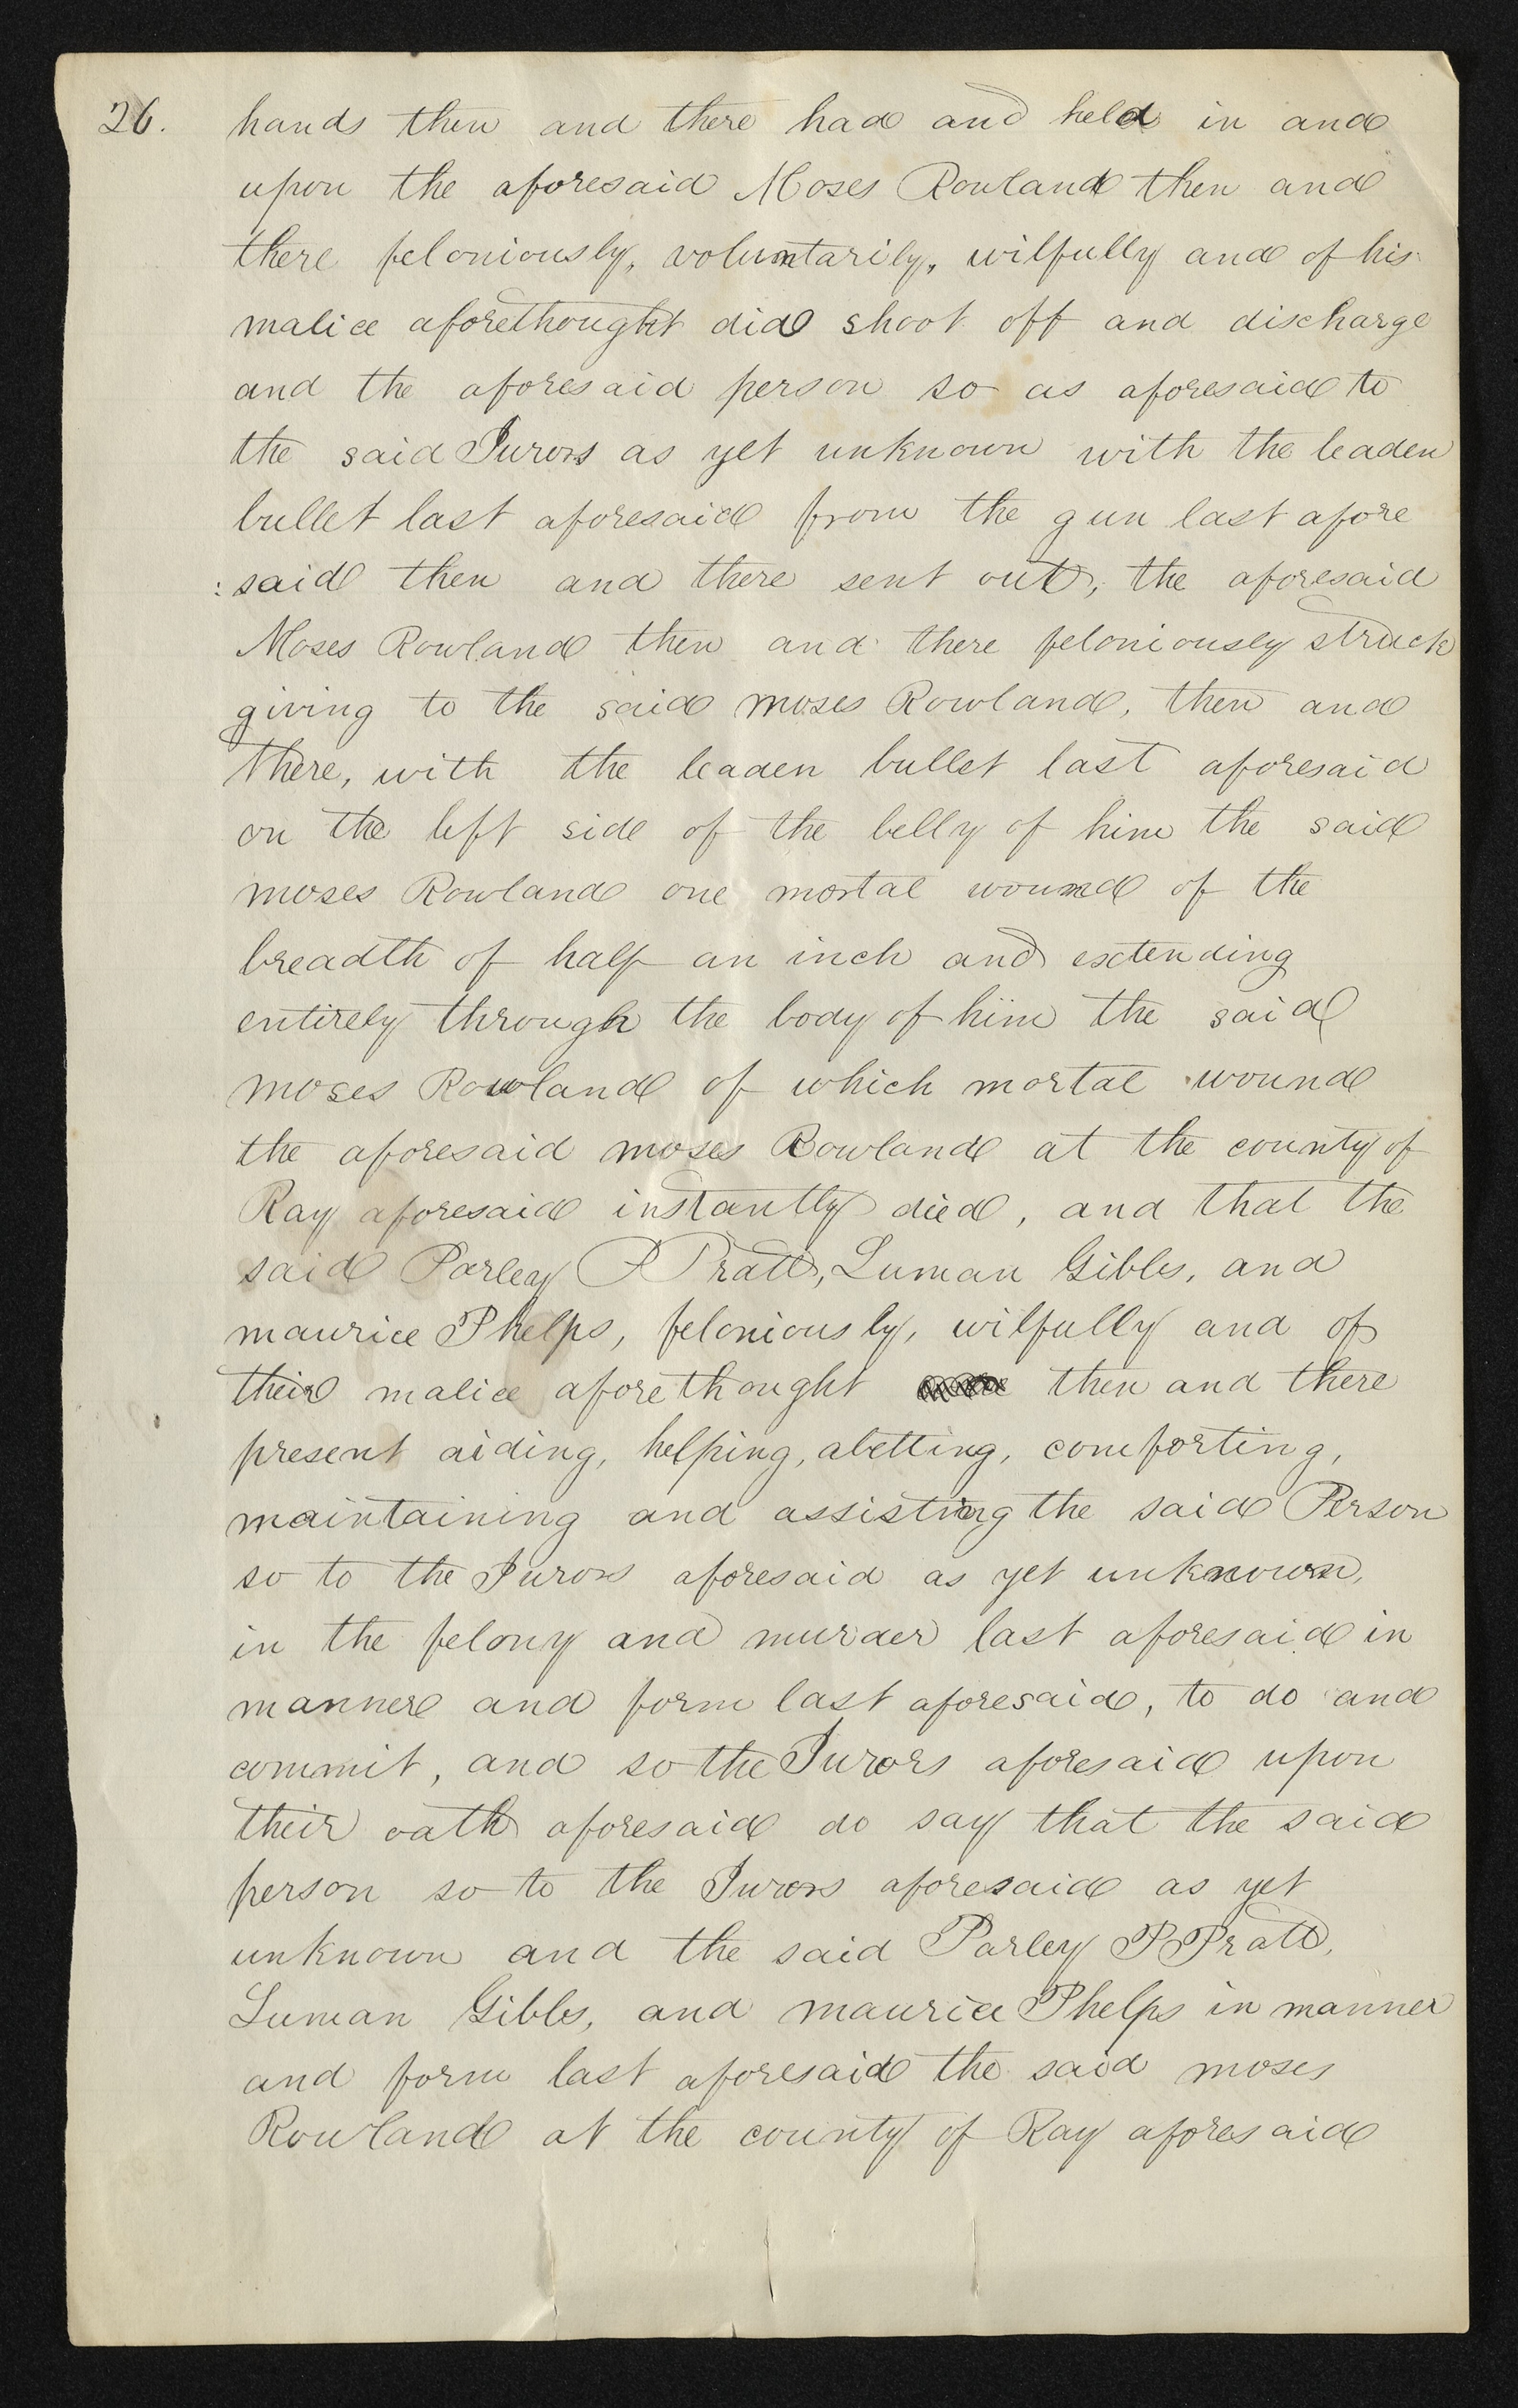 26. hands then and there had and held in and
upon the aforesaid Moses Rowland then and
there feloniously, voluntarily, wilfully and of his
malice aforethought did shoot off and discharge
and the aforesaid person so as aforesaid to
the said Jurors as yet unknown with the leaden
bullet last aforesaid from the gun last afore
:said then and there sent out, the aforesaid
Moses Rowland then and there feloniously struck
giving to the said moses Rowland, then and
there, with the leaden bullet last aforesaid
on the left side of the belly of him the said
moses Rowland one mortal wound of the
breadth of half an inch and extending
entirely through the body of him the said
moses Rowland of which mortal wound
the aforesaid moses Rowland at the county of
Ray aforesaid instantly died, and that the
said Parley P Pratt, Luman Gibbs, and
maurice Phelps, feloniously, wilfully and of
their malice aforethought then and there
present aiding, helping, abetting, comforting,
maintaining and assisting the said Person
so to the Jurors aforesaid as yet unknown,
in the felony and murder last aforesaid in
manner and form last aforesaid, to do and
commit, and so the Jurors aforesaid upon
their oath aforesaid do say that the said
person so to the Jurors aforesaid as yet
unknown and the said Parley P Pratt,
Luman Gibbs, and maurice Phelps in manner
and form last aforesaid the said moses
Rowland at the county of Ray aforesaid